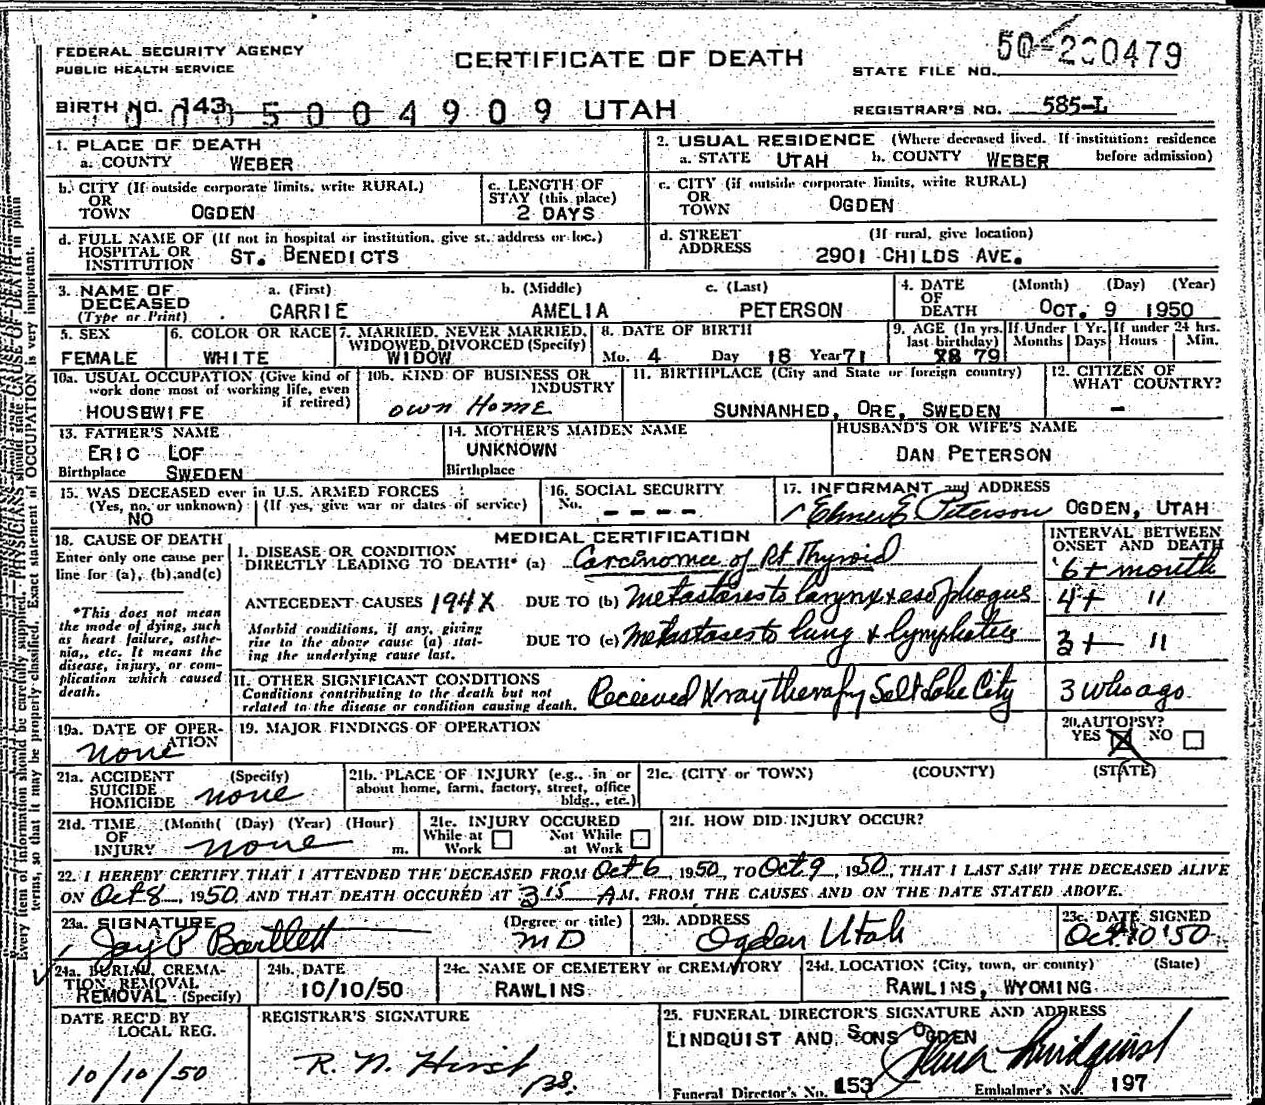 FEDERAL SECURITY AGENCY
PUBLIC HEALTH SERVICE
CERTIFICATE OF DEATH
STATE FILE NO. 50-200479
BIRTH NO. 143 0005004909 UTAH
REGISTRAR'S NO. 585-L
1. PLACE OF DEATH
a. COUNTY WEBER
2. USUAL RESIDENCE (Where deceased lived. If institution: residence before admission)
a. STATE UTAH b. COUNTY WEBER
b. CITY (If outside corporate limits, write RURAL)
OR
TOWN OGDEN
c. LENGTH OF
STAY (this place)
2 DAYS
c. CITY (if outside corporate limits, write RURAL)
OR
TOWN OGDEN
d. FULL NAME OF (If not in hospital or institution, give st. address or loc.)
HOSPITAL OR
INSTITUTION ST. BENEDICTS
d. STREET (If rural, give location)
ADDRESS 2901 CHILDS AVE.
3. NAME OF
DECEASED
(Type or Print)
a. (First) b. (Middle) c. (Last)
CARRIE AMELIA PETERSON
4. DATE
OF
DEATH
(Month) (Day) (Year)
OCT. 9 1950
5. SEX
FEMALE
6. COLOR OR RACE
WHITE
7. MARRIED, NEVER MARRIED,
WIDOWED, DIVORCED (Specify)
WIDOW
8. DATE OF BIRTH
Mo. 4 Day 18 Year 71
9. AGE (In yrs.
last birthday)
79
If Under 1 Yr.
Months Days
If under 24 hrs.
Hours Min.
10a. USUAL OCCUPATION (Give kind of
work done most of working life, even
if retired)
HOUSEWIFE
10b. KIND OF BUSINESS OR
INDUSTRY
own Home
11. BIRTHPLACE (City and State or foreign country)
SUNNANHED, ORE, SWEDEN
12. CITIZEN OF
WHAT COUNTRY?
-
13. FATHER'S NAME
ERIC LOF
Birthplace SWEDEN
14. MOTHER'S MAIDEN NAME
UNKNOWN
Birthplace
HUSBAND'S OR WIFE'S NAME
DAN PETERSON
15. WAS DECEASED ever in U.S. ARMED FORCES
(Yes, no, or unknown) (If yes, give war or dates of service)
NO
16. SOCIAL SECURITY
No. - - - -
17. INFORMANT and ADDRESS
Elmer E. Peterson OGDEN, UTAH
18. CAUSE OF DEATH
Enter only one cause per
line for (a), (b), and (c)
*This does not mean
the mode of dying, such
as heart failure, asthe-
nia, etc. It means the
disease, injury, or com-
plication which caused
death.
MEDICAL CERTIFICATION
INTERVAL BETWEEN
ONSET AND DEATH
I. DISEASE OR CONDITION
DIRECTLY LEADING TO DEATH* (a) Carcinoma of Rt Thyroid 6+ month
ANTECEDENT CAUSES 194X DUE TO (b) Metastases to larynx & esophagus 4+ "
Morbid conditions, if any, giving
rise to the above cause (a) stat-
ing the underlying cause last.
DUE TO (c) Metastases to lung & lymphatics 3+ "
II. OTHER SIGNIFICANT CONDITIONS
Conditions contributing to the death but not
related to the disease or condition causing death.
Received Xray therapy Salt Lake City 3 wks ago
19a. DATE OF OPER-
ATION
none
19. MAJOR FINDINGS OF OPERATION
20. AUTOPSY?
YES NO
21a. ACCIDENT (Specify)
SUICIDE
HOMICIDE none
21b. PLACE OF INJURY (e.g., in or
about home, farm, factory, street, office
bldg., etc.)
21c. (CITY or TOWN) (COUNTY) (STATE)
21d. TIME (Month) (Day) (Year) (Hour)
OF
INJURY none m.
21e. INJURY OCCURED
While at Work Not While at Work
21f. HOW DID INJURY OCCUR?
22. I HEREBY CERTIFY THAT I ATTENDED THE DECEASED FROM Oct 6, 1950, TO Oct 9, 1950, THAT I LAST SAW THE DECEASED ALIVE
ON Oct 8, 1950 AND THAT DEATH OCCURED AT 3 15 A M. FROM THE CAUSES AND ON THE DATE STATED ABOVE.
23a. SIGNATURE (Degree or title)
Jay P Bartlett MD
23b. ADDRESS
Ogden Utah
23c. DATE SIGNED
Oct 10 '50
24a. BURIAL, CREMA-
TION REMOVAL
REMOVAL (Specify)
24b. DATE
10/10/50
24c. NAME OF CEMETERY or CREMATORY
RAWLINS
24d. LOCATION (City, town, or county) (State)
RAWLINS, WYOMING
DATE REC'D BY
LOCAL REG.
10/10/50
REGISTRAR'S SIGNATURE
R. N. Hirst
25. FUNERAL DIRECTOR'S SIGNATURE AND ADDRESS
LINDQUIST AND SONS OGDEN
Lindquist
Funeral Director's No. 153 Embalmer's No. 197
Every item of information should be carefully supplied. PHYSICIANS should state CAUSE OF DEATH in plain
terms, so that it may be properly classified. Exact statement of OCCUPATION is very important.